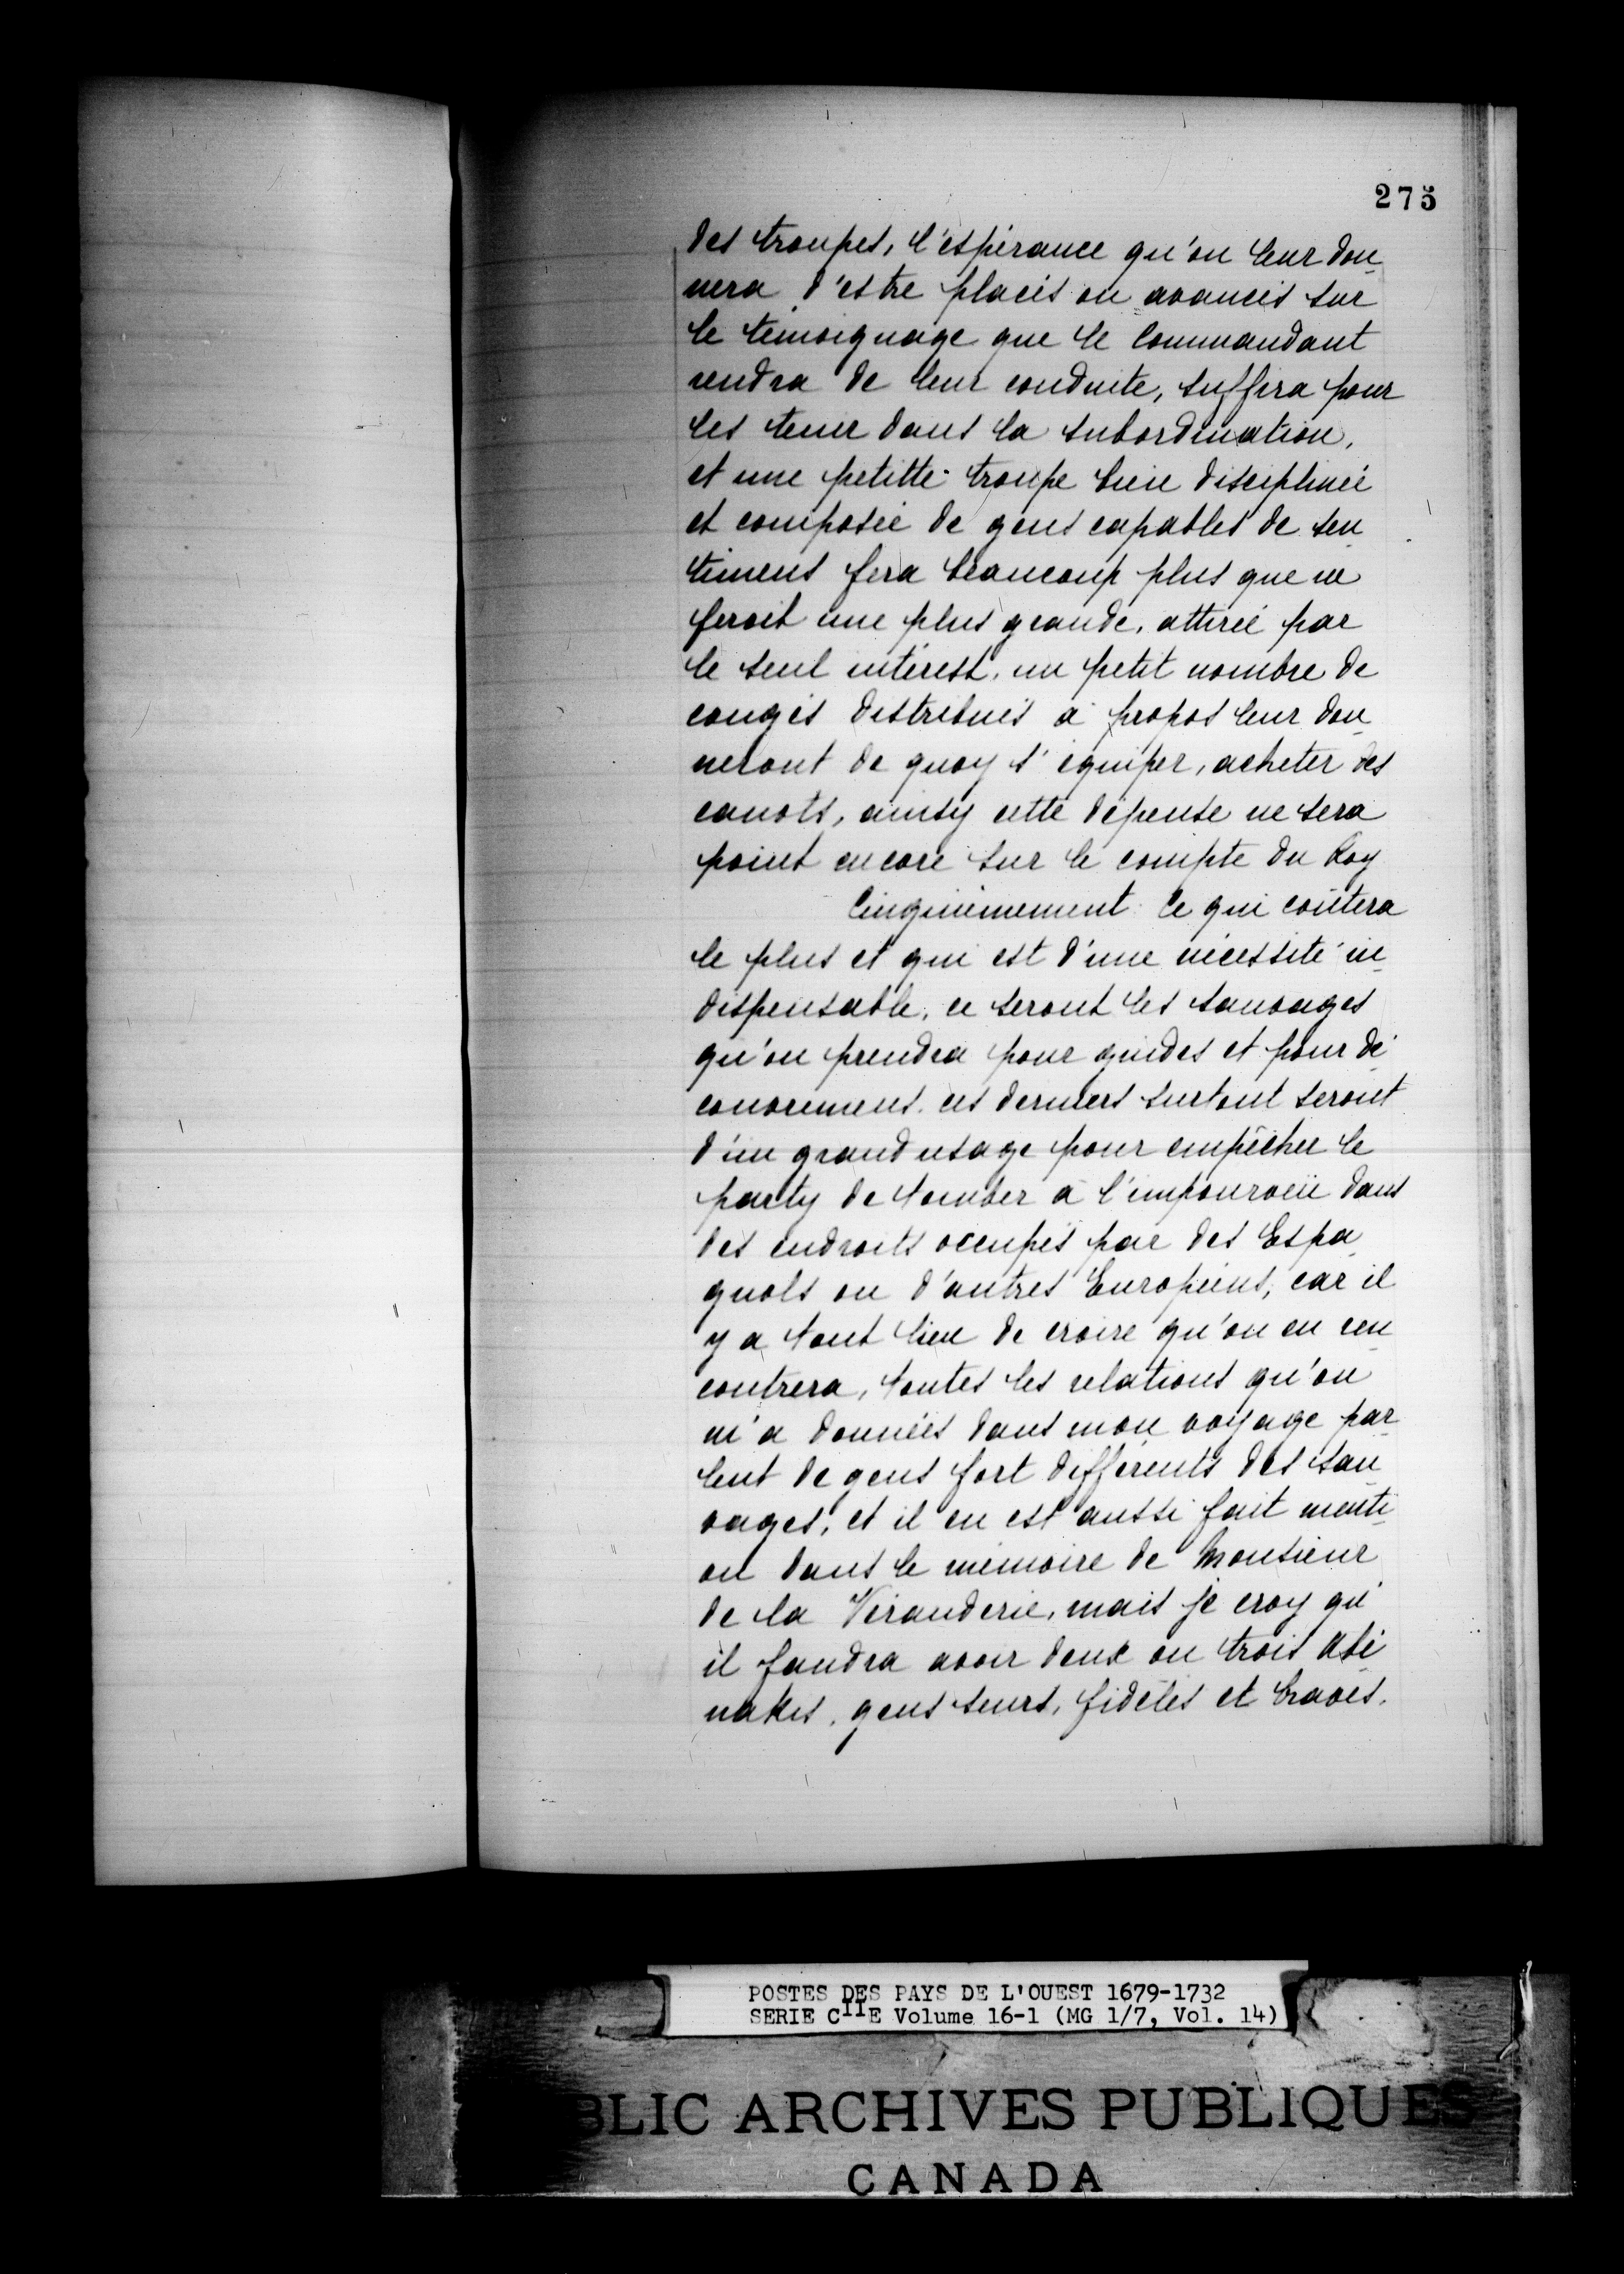 275
des troupes, l'espérance qu'on leur don_
nera d'estre placés ou avancés sur
le témoignage que le Commandant
rendra de leur conduite, suffira pour
les tenir dans la subordination,
et une petitte troupe bien disciplinée
et composée de gens capables de sen_
timens fera beaucoup plus que ne
feroit une plus grande, attirée par
le seul intérest, un petit nombre de
congés distribués à propos leur don_
neront de quoy s'équiper, acheter des
canots, ainsy cette dépense ne sera
point encore sur le compte du Roy
Cinquièmement Ce qui coûtera
le plus et qui est d'une nécessité in_
dispensable, ce seront les sauvages
qu'on prendra pour guides et pour dé_
couvremens. ces derniers surtout seront
d'un grand usage pour empêcher le
party de tomber à l'impourveüe dans
des endroits occupés par des Espa_
gnols ou d'autres Européens, car il
y a tout lieu de croire qu'on en ren_
contrera, toutes les relations qu'on
m'a données dans mon voyage par_
lent de gens fort différents des sau_
vages, et il en est aussi fait menti_
on dans le mémoire de Monsieur
de la Véranderie, mais je croy qu'
il faudra avoir deux ou trois Abé
nakis, gens seurs, fidèles et braves.
POSTES DES PAYS DE L'OUEST 1679-1732
SERIE CIIE Volume 16-1 (MG 1/7, Vol. 14)
BLIC ARCHIVES PUBLIQUES
CANADA